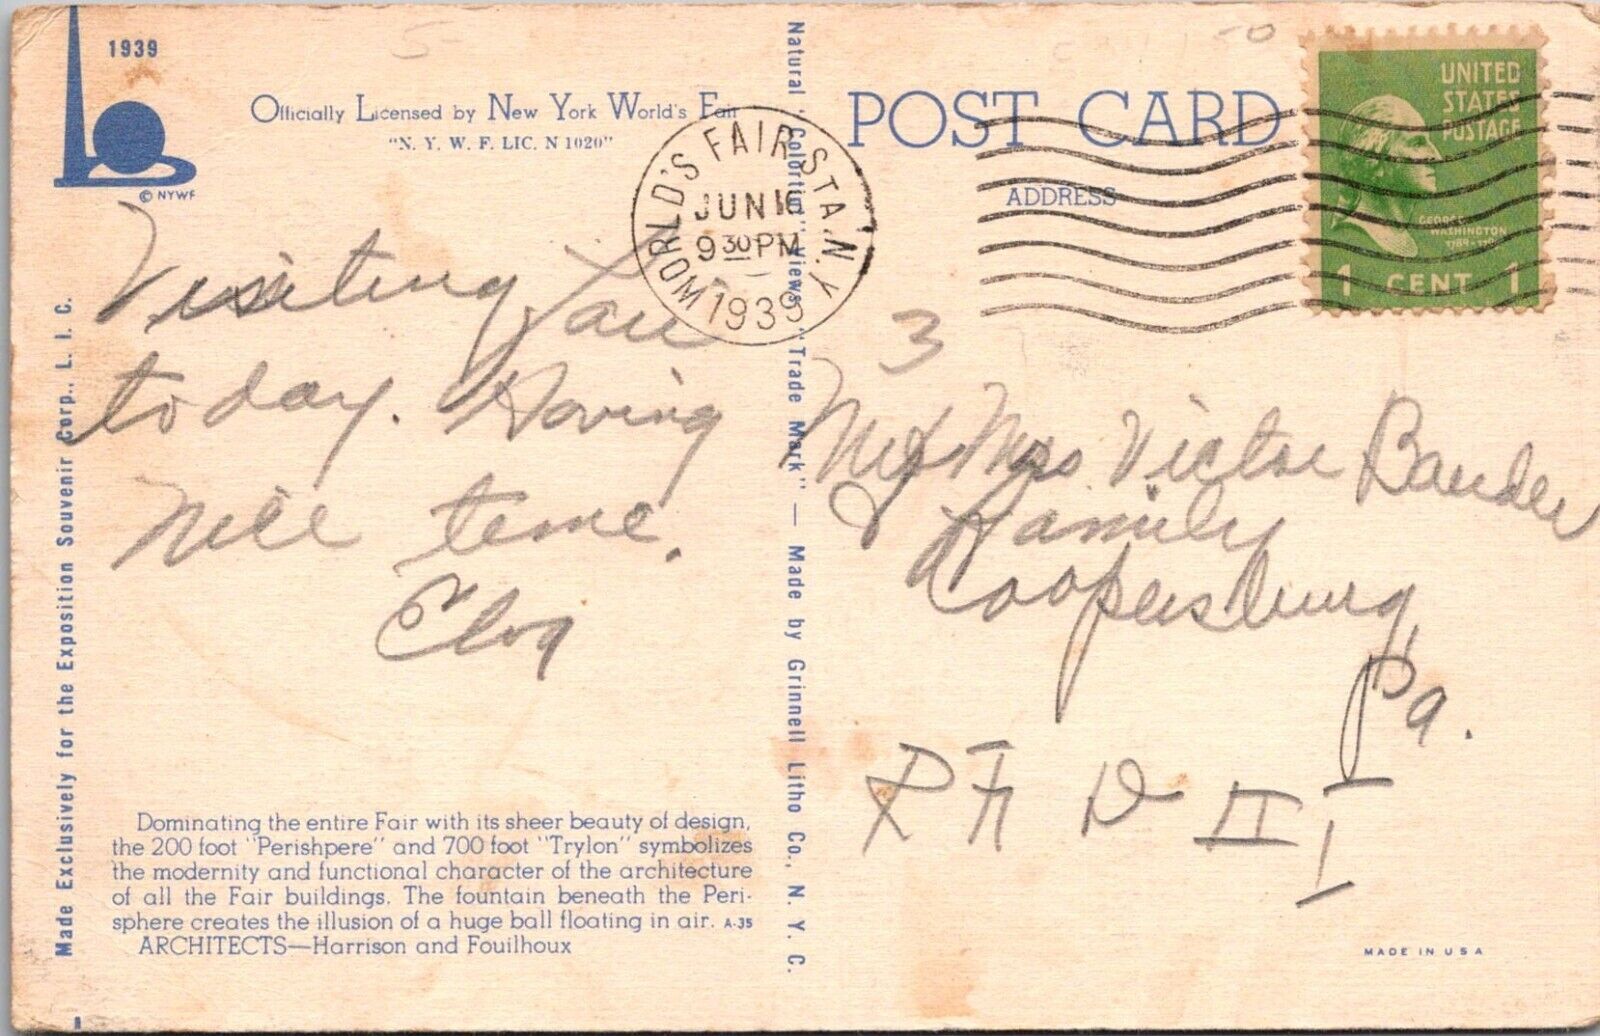 1939
© NYWF
Officially Licensed by New York World's Fair
"N. Y. W. F. LIC. N 1020"
Visiting Fair
today. Having
Nice time.
Made Exclusively for the Exposition Souvenir Corp., L. I. C.
Dominating the entire Fair with its sheer beauty of design,
the 200 foot "Perishpere" and 700 foot "Trylon" symbolizes
the modernity and functional character of the architecture
of all the Fair buildings. The fountain beneath the Peri-
sphere creates the illusion of a huge ball floating in air. A-35
ARCHITECTS—Harrison and Fouilhoux
Natural "Colortint" Views "Trade Mark" — Made by Grinnell Litho Co., N. Y. C.
WORLD'S FAIR STA. N.Y.
JUN 16
9 30 PM
1939
POST CARD
ADDRESS
UNITED
STATES
POSTAGE
GEORGE
WASHINGTON
1789-1797
1 CENT 1
5
3
Mr & Mrs Victor Bauder
& Family
Coopersburg,
Pa.
R F D II
MADE IN U S A